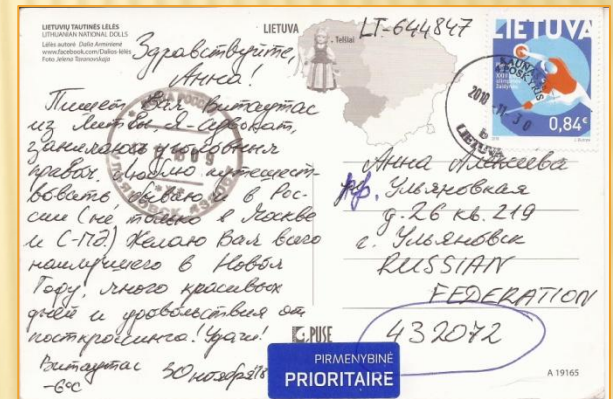 LIETUVIŲ TAUTINĖS LĖLĖS
LITHUANIAN NATIONAL DOLLS
Lėlės autorė Dalia Arminienė
www.facebook.com/Dalios-lėlės
Foto Jelena Tavanovskaja
LIETUVA
Telšiai
LT-644847
Здравствуйте,
Анна!
Пишет Вам Витаутас
из Литвы. Я-адвокат,
занимаюсь уголовным
правом. Люблю путешест-
вовать, бываю и в Рос-
сии (не только в Москве
и С-Пб.) Желаю Вам всего
наилучшего в Новом
Году, много красивых
дней и удовольствия от
посткроссинга! Удачи!
Витаутас
-6°C
30 ноября
LIETUVA
0,84€
LIETUVA
Анна
Ульяновская
д.26 кв. 219
г. Ульяновск
RUSSIAN
FEDERATION
432072
PUSĖ
PIRMENYBINĖ
PRIORITAIRE
A 19165